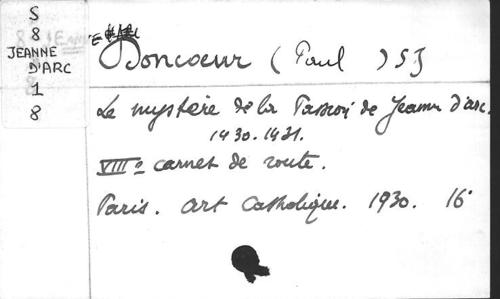 S
8
JEANNE
D'ARC
1
8
Doncoeur (Paul) SJ
Le mystère de la Passion de Jeanne d'arc.
1430-1431.
VIIIº carnet de route.
Paris. art catholique. 1930. 16°